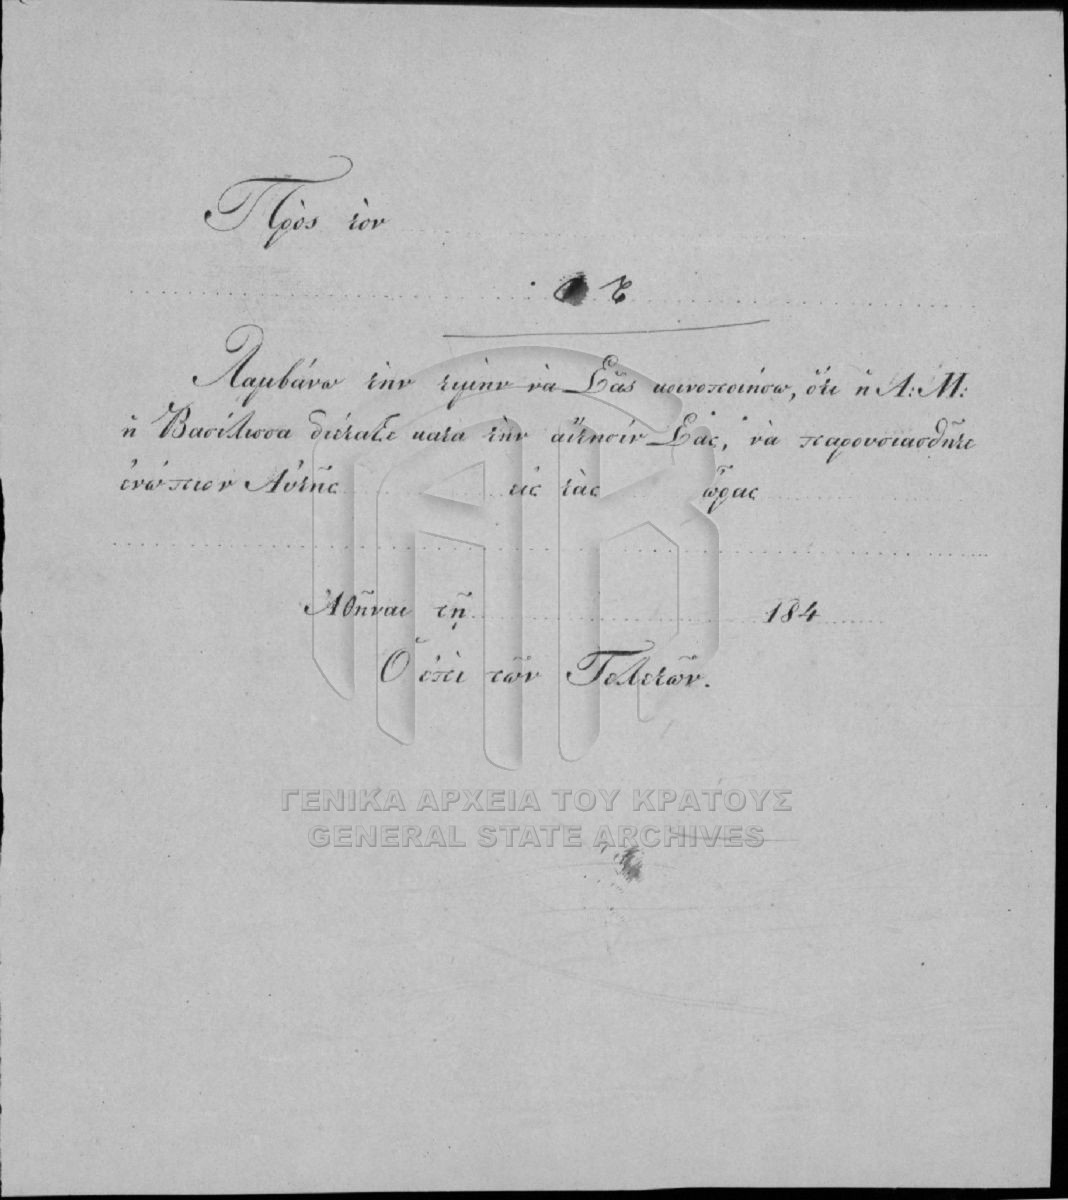 Πρὸς τὸν
Λαμβάνω τὴν τιμὴν νὰ Σᾶς κοινοποιήσω, ὅτι ἡ Α: Μ:
ἡ Βασίλισσα διέταξε κατα τὴν αἴτησίν Σας, νὰ παρουσιασθῆτε
ἐνώπιον Αὐτῆς εἰς τὰς ὥρας
Ἀθῆναι τῇ 184
Ὁ ἐπὶ τῶν Τελετῶν.
ΓΕΝΙΚΑ ΑΡΧΕΙΑ ΤΟΥ ΚΡΑΤΟΥΣ
GENERAL STATE ARCHIVES